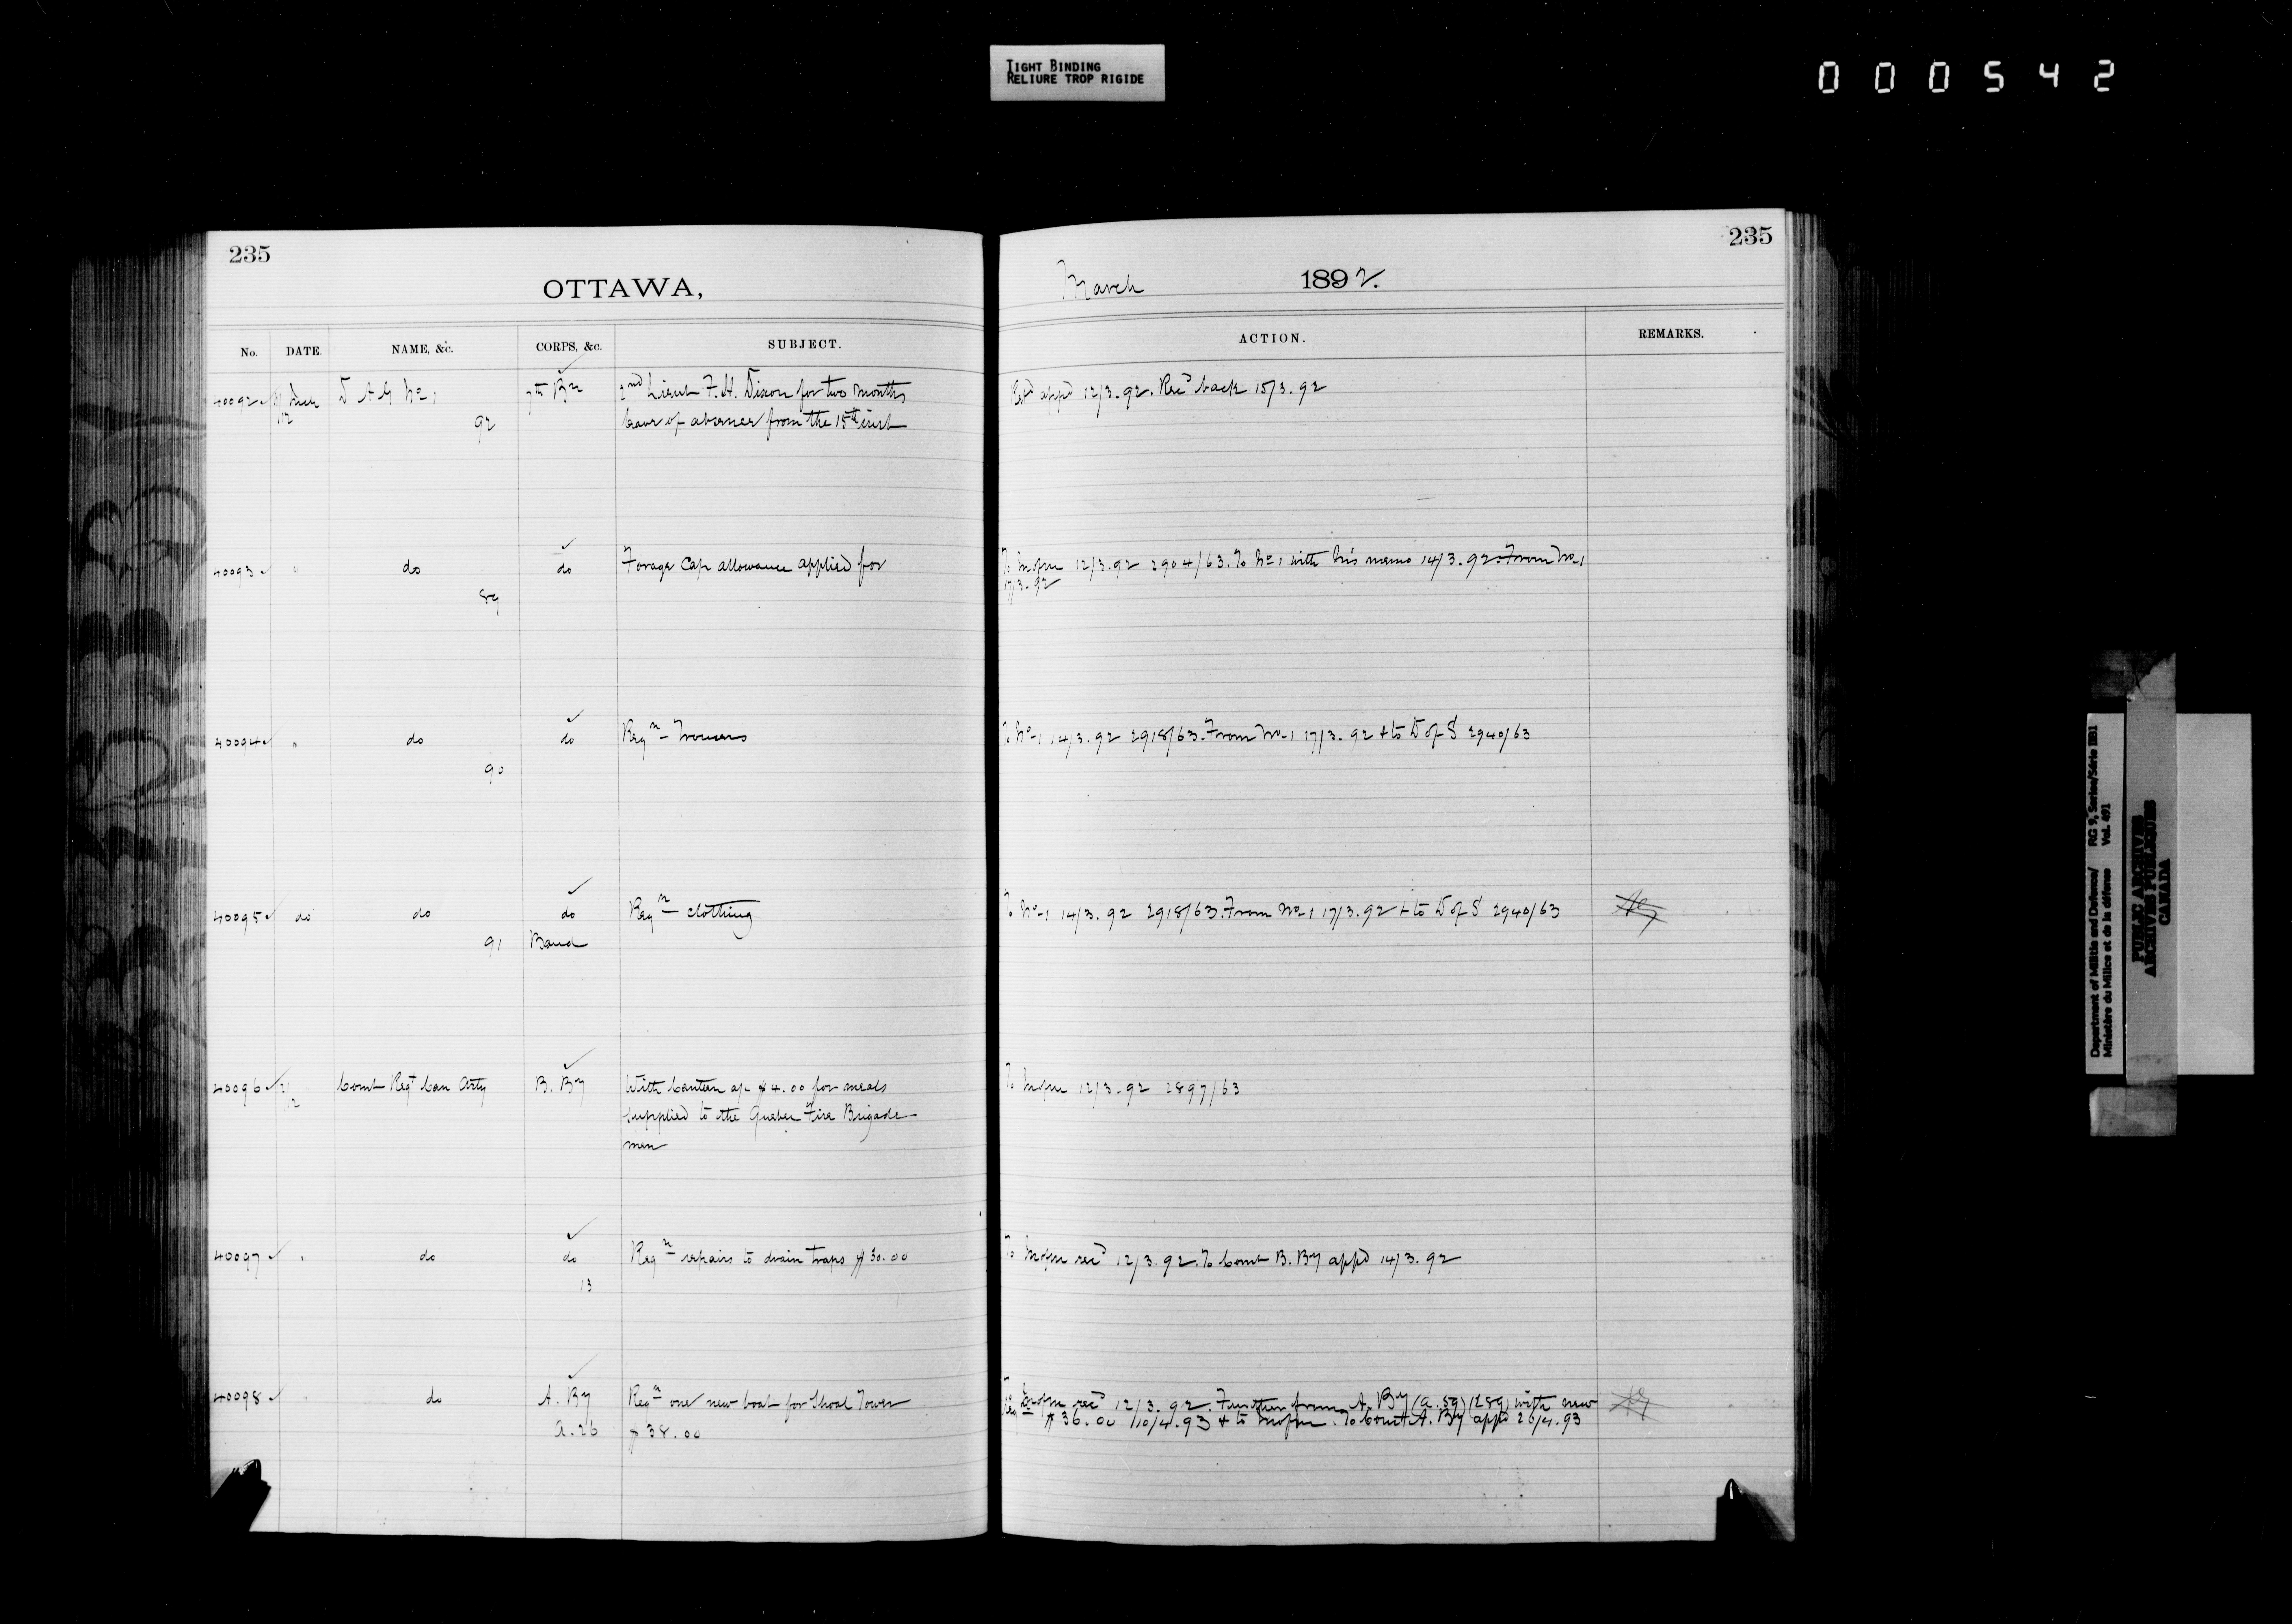 TIGHT BINDING
RELIURE TROP RIGIDE
000542
235
OTTAWA,
No. DATE. NAME, &c. CORPS, &c. SUBJECT.
40092 12 D A G No 1 7th Bn 2nd Lieut F. H. Dixon for two months
92 leave of absence from the 15th inst
40093 " do do Forage Cap allowance applied for
89
40094 " do do Reqn Trousers
90
40095 do do do Reqn clothing
91 Band
40096 12 Comt Regt Can Arty B. By With Canteen ac $4.00 for meals
supplied to the Quebec Fire Brigade
men
40097 " do do Reqn repairs to drain traps $30.00
13
40098 " do A. By Reqn one new boat for Shoal Tower
A.26 $38.00
235
March 1892.
ACTION. REMARKS.
Retd appd 12/3.92. Recd back 15/3.92
To 12/3.92 2904/63. To No 1 with his memo 14/3.92. From No 1
17/3.92
To No 1 14/3.92 2918/63. From No 1 17/3.92 & to D of S 2940/63
To No 1 14/3.92 2918/63. From No 1 17/3.92 & to D of S 2940/63
To 12/3.92 2897/63
To recd 12/3.92. To Comt B. By appd 14/3.92
To recd 12/3.92. Further from A. By (A.59) (289) with new
Reqn $36.00 10/4.93 & to. To Comt A. By appd 26/4.93
Department of Militia and Defence/ RG 9, Series/Série IIB1
Ministère du Milice et de la défense Vol. 491
PUBLIC ARCHIVES
ARCHIVES PUBLIQUES
CANADA